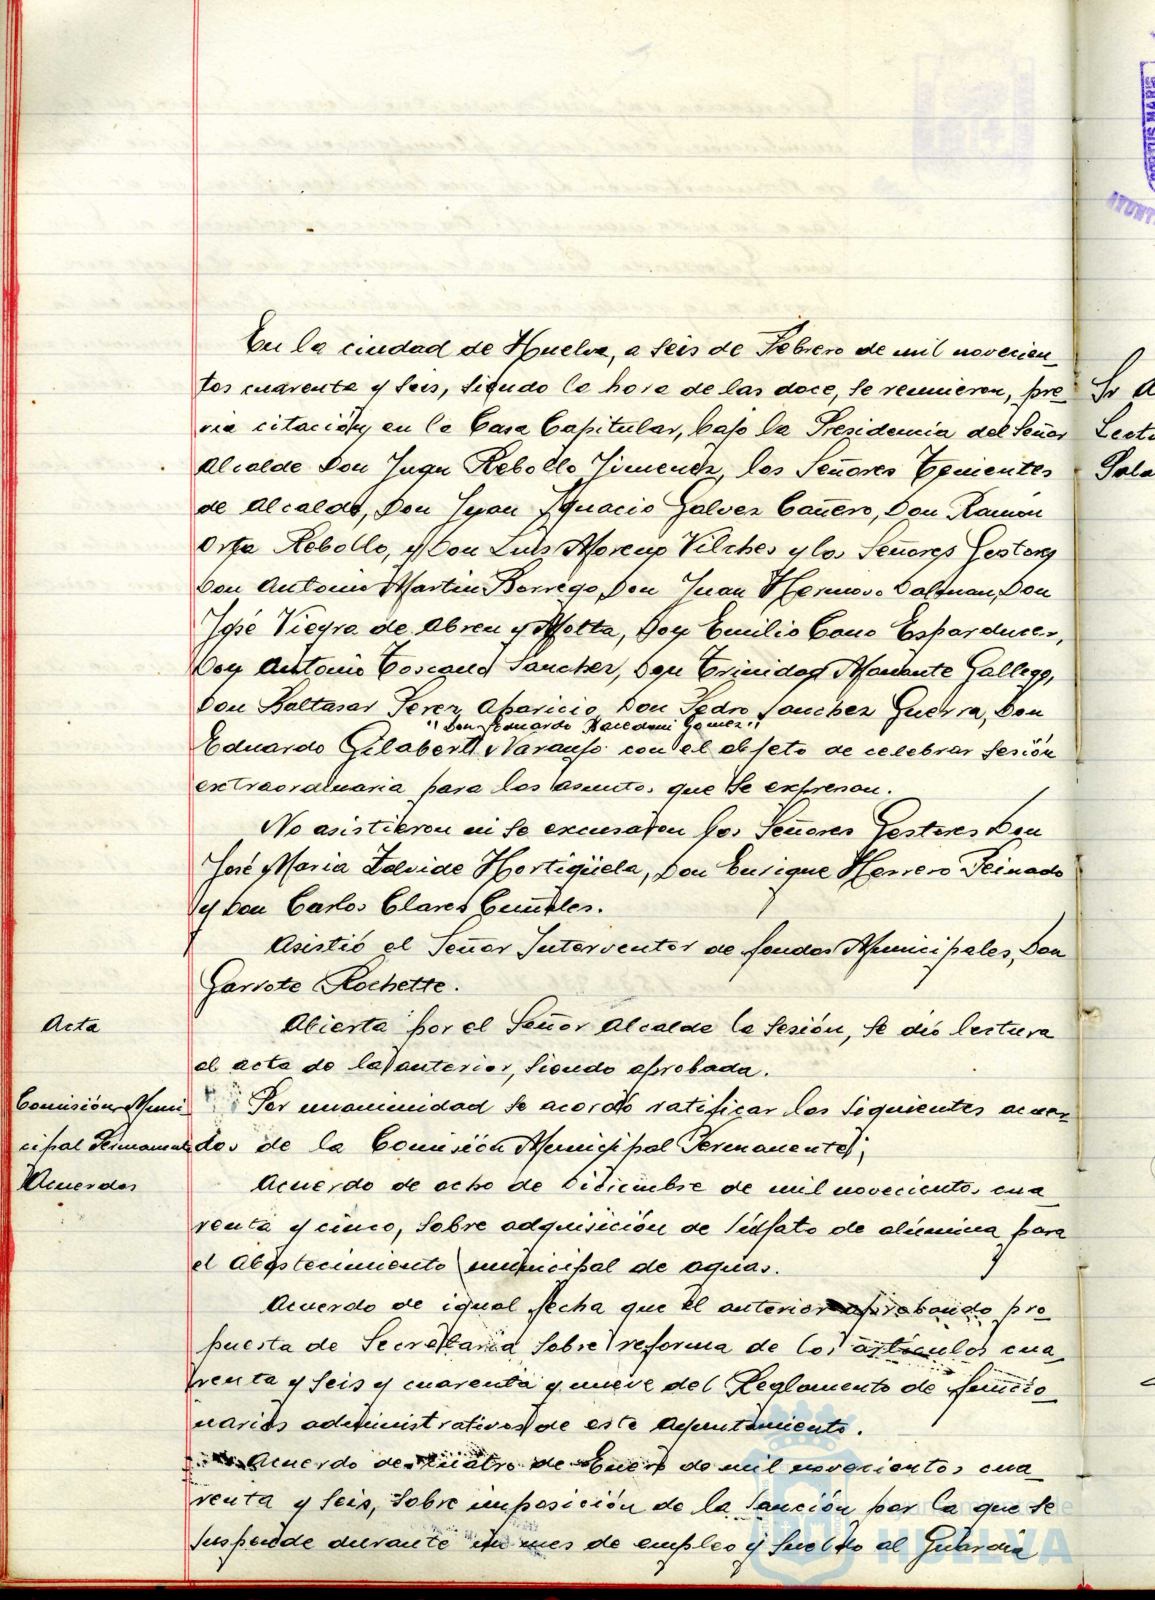 En la ciudad de Huelva, a seis de Febrero de mil novecien-
tos cuarenta y seis, siendo la hora de las doce, se reunieron, pre-
via citación, en la Casa Capitular, bajo la Presidencia del Señor
Alcalde Don Juan Rebollo Jimenez, los Señores Tenientes
de Alcalde, Don Juan Ignacio Galvez Cañero, Don Ramón
Orta Rebollo, y Don Luis Moreno Vilches y los Señores Gestores
Don Antonio Martin Borrego, Don Juan Hermoso Dalman, Don
José Vieyra de Abreu y Motta, Don Emilio Cano Esparducer,
Don Antonio Toscano Sanchez, Don Trinidad Gallego,
Don Baltasar Perez Aparicio, Don Pedro Sanchez Guerra, Don
"Don Eduardo Gomez"
Eduardo Gilabert Naranjo con el objeto de celebrar sesión
extraordinaria para los asuntos que se expresan.
No asistieron ni se excusaron los Señores Gestores Don
José Maria Hortigüela, Don Enrique Herrero Peinado
y Don Carlos Clares
Asistió el Señor Interventor de fondos Municipales, Don
Garrote Rochette.
Acta
Abierta por el Señor Alcalde la sesión, se dió lectura
al acta de la anterior, siendo aprobada.
Comisión Muni
cipal Permanente
Acuerdos
Por unanimidad se acordó ratificar los siguientes acuer-
dos de la Comisión Municipal Permanente;
Acuerdo de ocho de Diciembre de mil novecientos cua
renta y cinco, sobre adquisición de sulfato de alúmina para
el Abastecimiento municipal de aguas.
Acuerdo de igual fecha que el anterior aprobando pro-
puesta de Secretaria sobre reforma de los artículos cua-
renta y seis y cuarenta y nueve del Reglamento de funcio-
narios administrativos de este Ayuntamiento.
Acuerdo de cuatro de Enero de mil novecientos cua
renta y seis, sobre imposición de la sanción por la que se
suspende durante un mes de empleo y sueldo al Guardia
Sr A
Lect
HUELVA